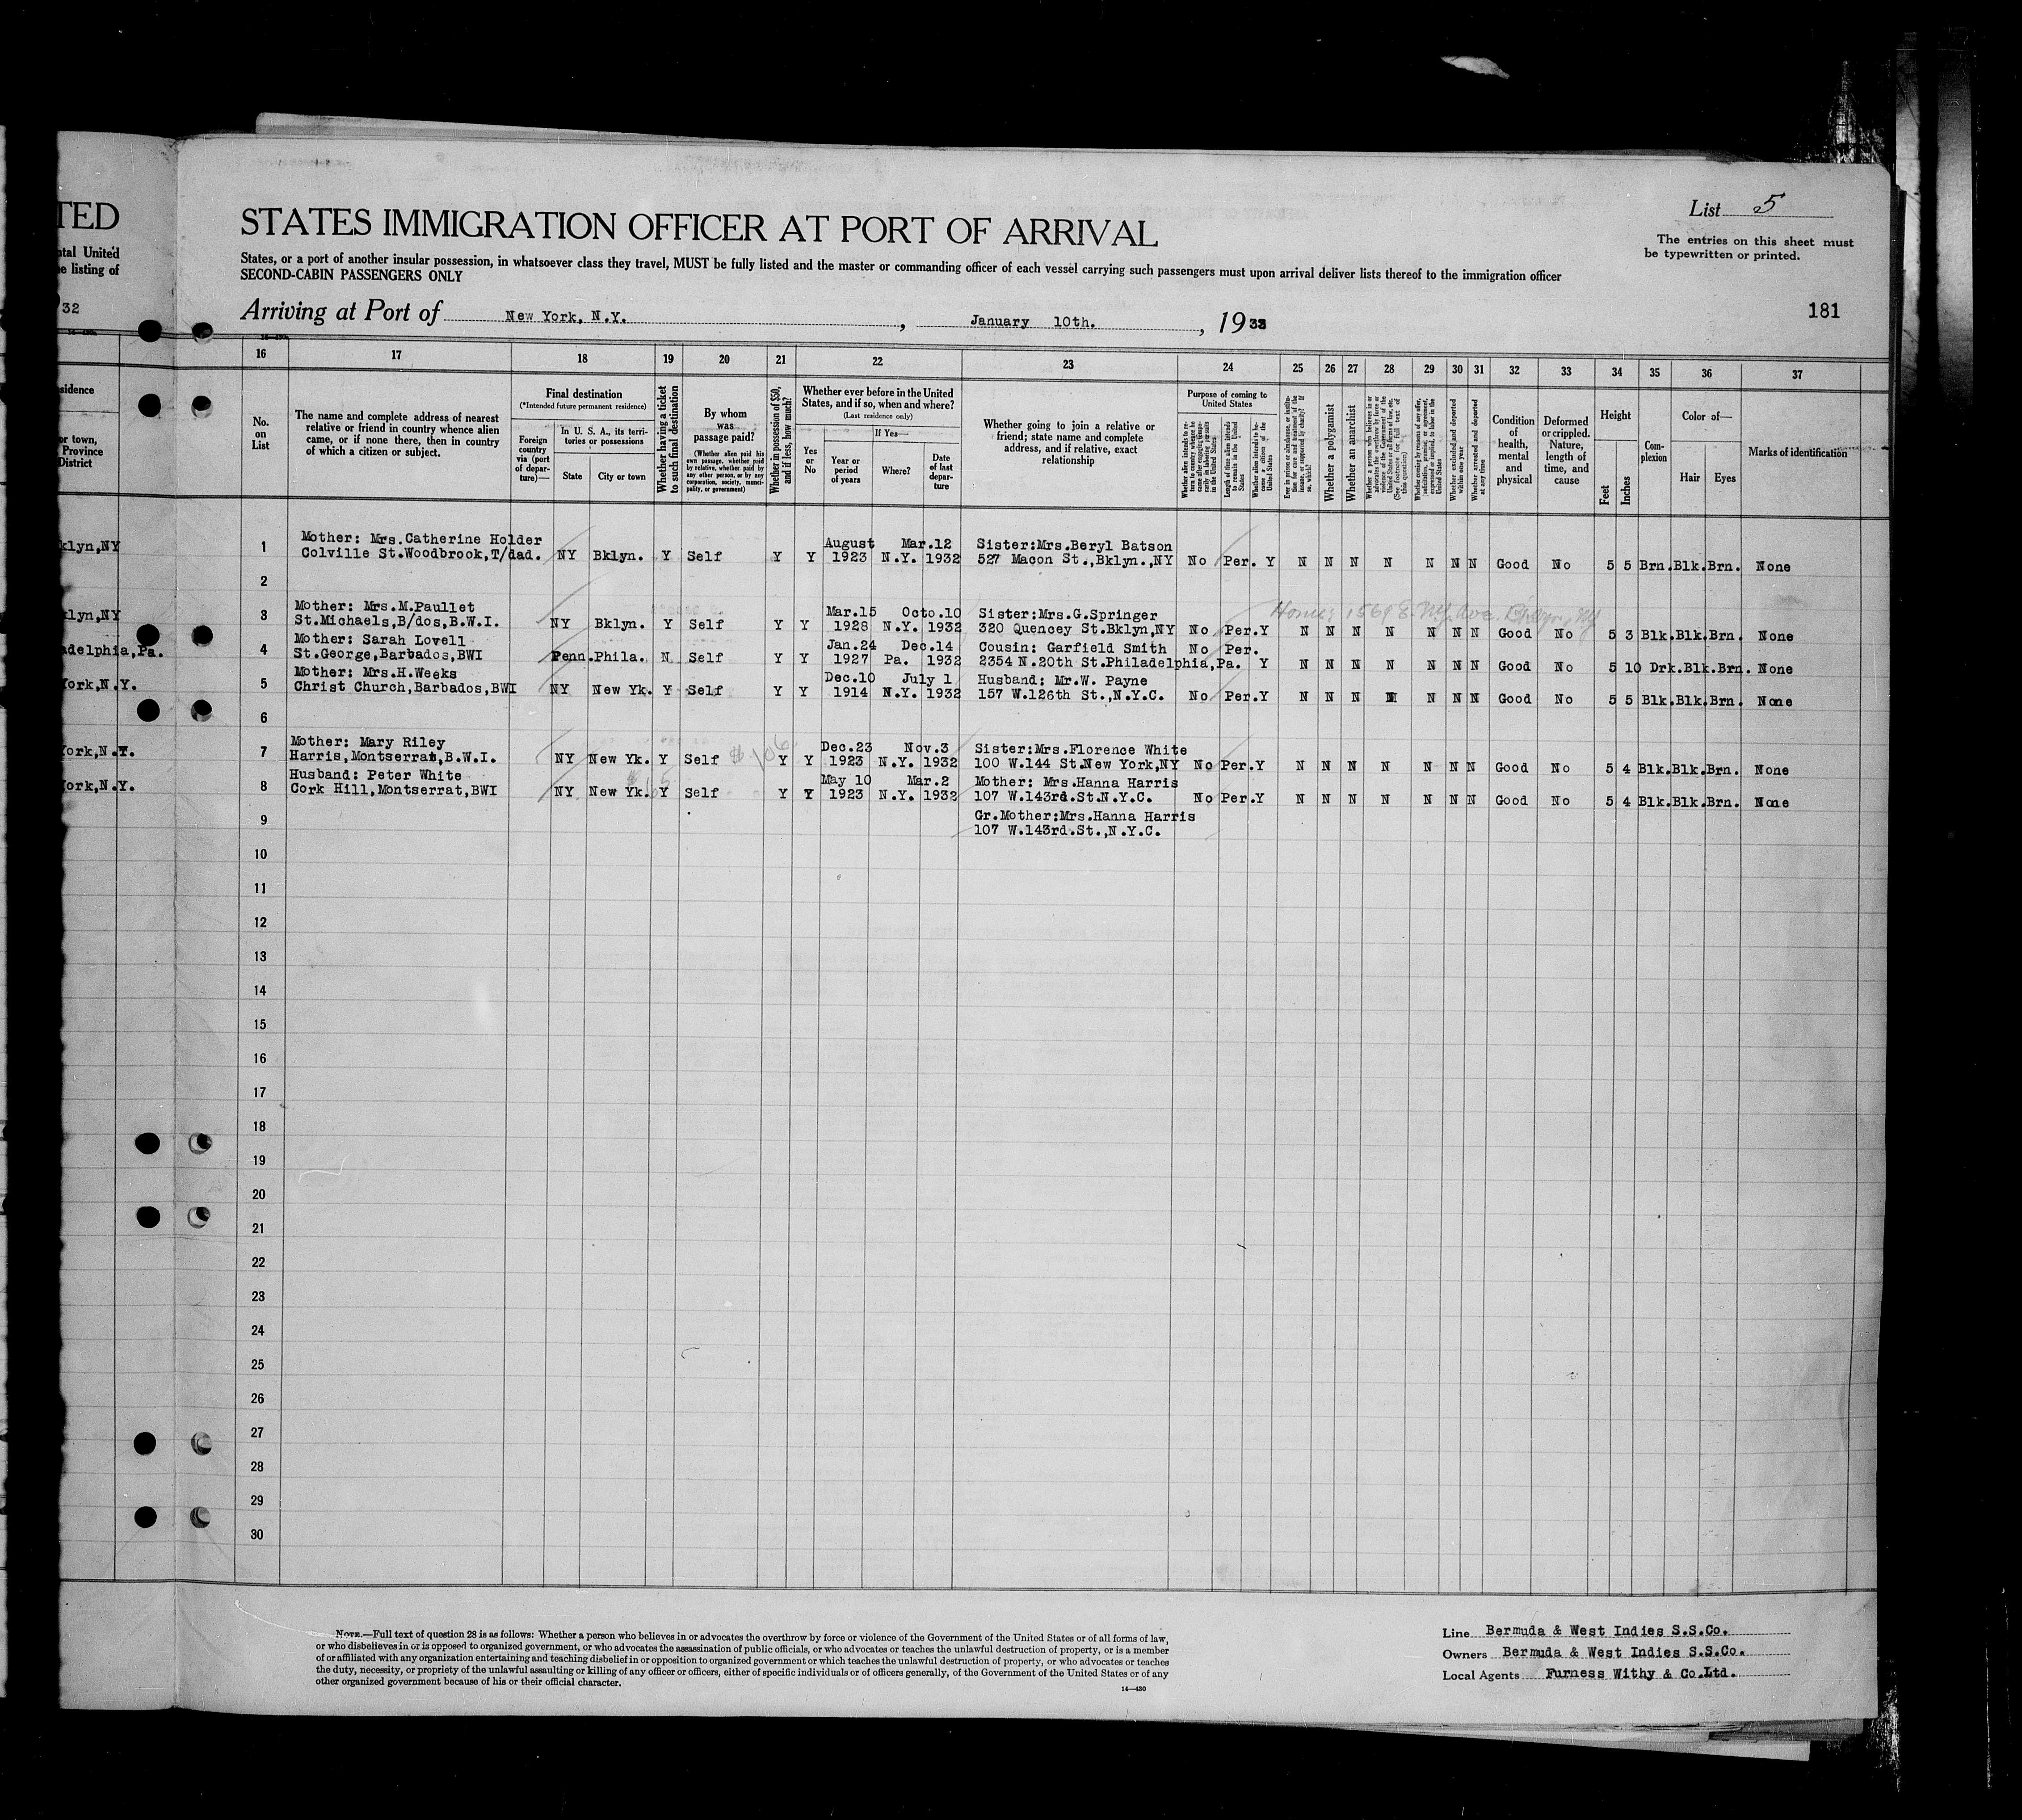 TED
STATES IMMIGRATION OFFICER AT PORT OF ARRIVAL
List 5
The entries on this sheet must
be typewritten or printed.
ntal United
e listing of
States, or a port of another insular possession, in whatsoever class they travel, MUST be fully listed and the master or commanding officer of each vessel carrying such passengers must upon arrival deliver lists thereof to the immigration officer
SECOND-CABIN PASSENGERS ONLY
32
Arriving at Port of New York, N.Y. , January 10th. , 1933
181
16 17 18 19 20 21 22 23 24 25 26 27 28 29 30 31 32 33 34 35 36 37
sidence
or town,
Province
District
No.
on
List
The name and complete address of nearest
relative or friend in country whence alien
came, or if none there, then in country
of which a citizen or subject.
Final destination
(*Intended future permanent residence)
Foreign
country
via (port
of depar-
ture)—
In U. S. A., its terri-
tories or possessions
State
City or town
Whether having a ticket
to such final destination
By whom
was
passage paid?
(Whether alien paid his
own passage, whether paid
by relative, whether paid by
any other person, or by any
corporation, society, munici-
pality, or government)
Whether in possession of $50,
and if less, how much?
Whether ever before in the United
States, and if so, when and where?
(Last residence only)
Yes
or
No
If Yes—
Year or
period
of years
Where?
Date
of last
depar-
ture
Whether going to join a relative or
friend; state name and complete
address, and if relative, exact
relationship
Purpose of coming to
United States
Whether alien intends to re-
turn to country whence he
came after engaging tempo-
rarily in laboring pursuits
in the United States
Length of time alien intends
to remain in the United
States
Whether alien intends to be-
come a citizen of the
United States
Ever in prison or almshouse, or institu-
tion for care and treatment of the
insane, or supported by charity? If
so, which?
Whether a polygamist
Whether an anarchist
Whether a person who believes in or
advocates the overthrow by force or
violence of the Government of the
United States or all forms of law, etc.
(See footnote for full text of
this question)
Whether coming by reason of any offer,
solicitation, promise, or agreement,
expressed or implied, to labor in the
United States
Whether excluded and deported
within one year
Whether arrested and deported
at any time
Condition
of
health,
mental
and
physical
Deformed
or crippled.
Nature,
length of
time, and
cause
Height
Feet
Inches
Com-
plexion
Color of—
Hair
Eyes
Marks of identification
klyn,NY
1 Mother: Mrs.Catherine Holder August Mar.12 Sister:Mrs.Beryl Batson
Colville St.Woodbrook,T/dad. NY Bklyn. Y Self Y Y 1923 N.Y. 1932 527 Macon St.,Bklyn.,NY No Per. Y N N N N N N N Good No 5 5 Brn.Blk.Brn. None
2
klyn,NY
3 Mother: Mrs.M.Paullet Mar.15 Octo.10 Sister:Mrs.G.Springer Home: 1569 E. NY. Ave. Bklyn, NY
St.Michaels,B/dos,B.W.I. NY Bklyn. Y Self Y Y 1928 N.Y. 1932 320 Quencey St.Bklyn,NY No Per.Y N N N N N N N Good No 5 3 Blk.Blk.Brn. None
adelphia,Pa.
4 Mother: Sarah Lovell Jan.24 Dec.14 Cousin: Garfield Smith No Per.
St.George,Barbados,BWI Penn.Phila. N Self Y Y 1927 Pa. 1932 2354 N.20th St.Philadelphia,Pa. Y N N N N N N N Good No 5 10 Drk.Blk.Brn. None
York,N.Y.
5 Mother: Mrs.H.Weeks Dec.10 July 1 Husband: Mr.W. Payne
Christ Church,Barbados,BWI NY New Yk. Y Self Y Y 1914 N.Y. 1932 157 W.126th St.,N.Y.C. No Per.Y N N N N N N N Good No 5 5 Blk.Blk.Brn. None
6
York,N.Y.
7 Mother: Mary Riley $106 Dec.23 Nov.3 Sister:Mrs.Florence White
Harris,Montserrat,B.W.I. NY New Yk. Y Self Y Y 1923 N.Y. 1932 100 W.144 St.New York,NY No Per.Y N N N N N N N Good No 5 4 Blk.Blk.Brn. None
York,N.Y.
8 Husband: Peter White May 10 Mar.2 Mother: Mrs.Hanna Harris
Cork Hill,Montserrat,BWI NY New Yk. Y Self Y Y 1923 N.Y. 1932 107 W.143rd.St.N.Y.C. No Per.Y N N N N N N N Good No 5 4 Blk.Blk.Brn. None
9 Gr.Mother:Mrs.Hanna Harris
107 W.143rd.St.,N.Y.C.
10
11
12
13
14
15
16
17
18
19
20
21
22
23
24
25
26
27
28
29
30
NOTE.—Full text of question 28 is as follows: Whether a person who believes in or advocates the overthrow by force or violence of the Government of the United States or of all forms of law,
or who disbelieves in or is opposed to organized government, or who advocates the assassination of public officials, or who advocates or teaches the unlawful destruction of property, or is a member
of or affiliated with any organization entertaining and teaching disbelief in or opposition to organized government or which teaches the unlawful destruction of property, or who advocates or teaches
the duty, necessity, or propriety of the unlawful assaulting or killing of any officer or officers, either of specific individuals or of officers generally, of the Government of the United States or of any
other organized government because of his or their official character.
14—430
Line Bermuda & West Indies S.S.Co.
Owners Bermuda & West Indies S.S.Co.
Local Agents Furness Withy & Co.Ltd.